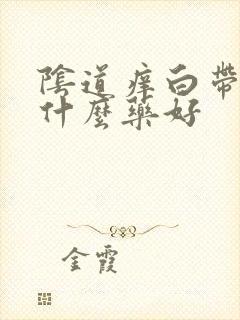 陰道痒白帶
什麼藥好
金霞